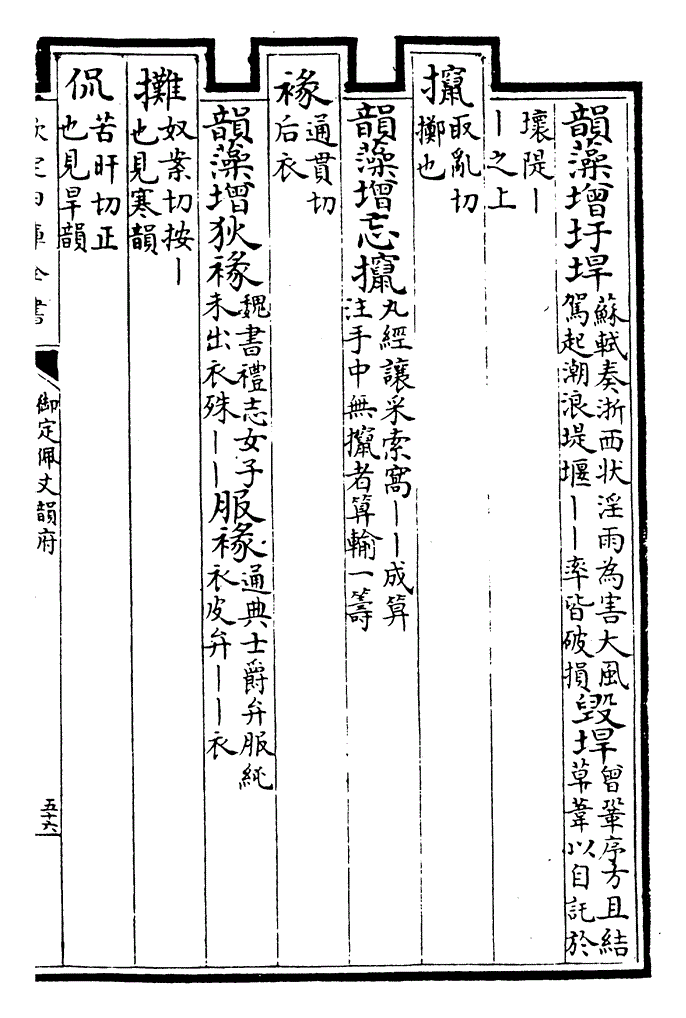 韻藻增圩埠蘇軾奏浙西状淫雨為害大風駕起潮浪堤堰丨丨率皆破損毀埠曾鞏序方且結草葦以自託於
壞隄丨丨之上
攛取亂切擲也
韻藻增忘攛丸經讓采索窩丨丨成算注手中無攛者算輸一籌
褖通貫切后衣
韻藻增狄褖魏書禮志女子未出衣殊丨丨服褖通典士爵弁服純衣皮弁丨丨衣
攤奴案切按丨也見寒韻
侃苦旰切正也見旱韻
欽定四庫全書
御定佩文韻府
五十六